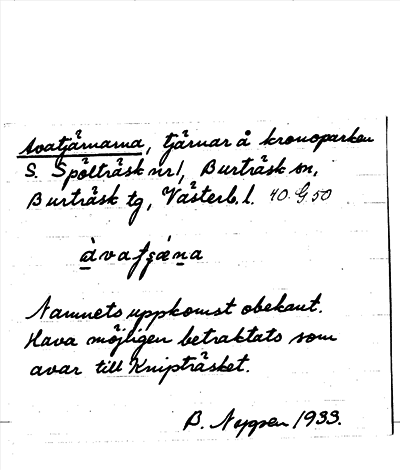 Avatjärnarna, tjärnar å kronoparken
S. Spölträsk nr1, Burträsk sn,
Burträsk tg, Västerb. l. 40 G 50
àvaʃǽṇa
Namnets uppkomst obekant.
Hava möjligen betraktats som
avar till Knipträsket.
B. Nygren 1933.